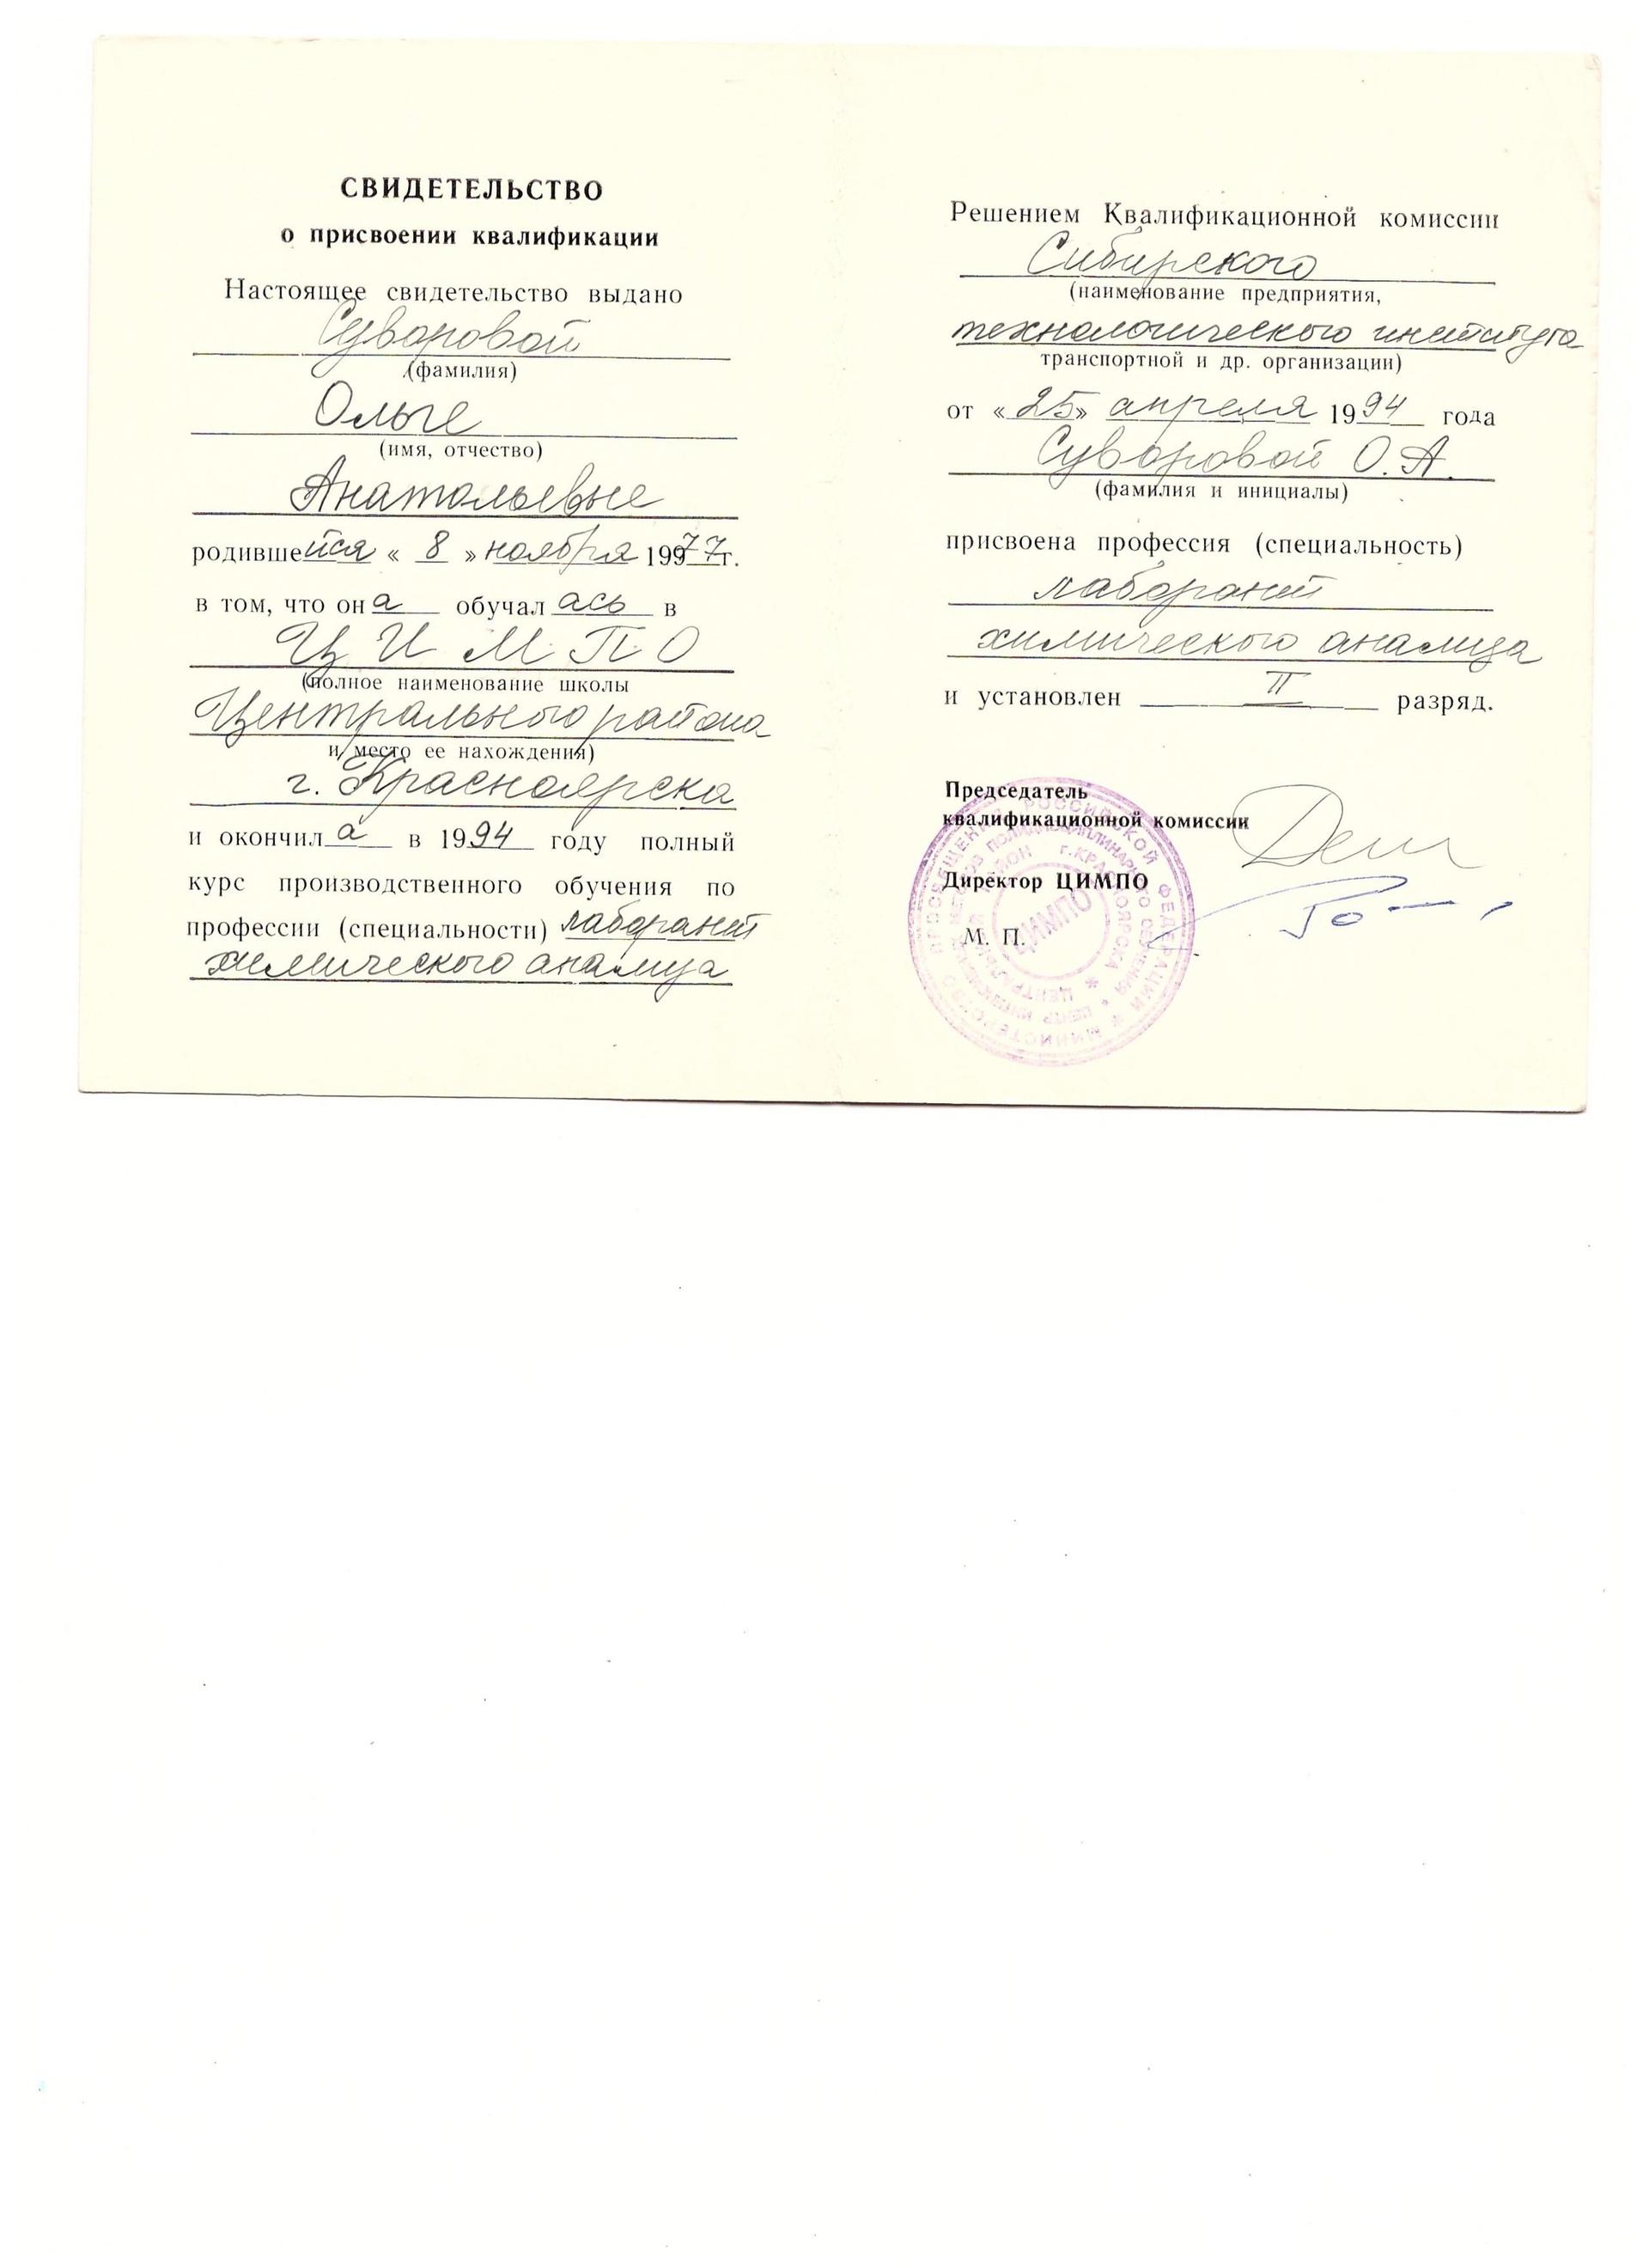 СВИДЕТЕЛЬСТВО
о присвоении квалификации
Настоящее свидетельство выдано
Суворовой
(фамилия)
Ольге
(имя, отчество)
Анатольевне
родившейся « 8 » ноября 1977г.
в том, что она обучалась в
ЦИМПО
(полное наименование школы
Центрального района
и место ее нахождения)
г. Красноярска
и окончила в 1994 году полный
курс производственного обучения по
профессии (специальности) лаборант
химического анализа
Решением Квалификационной комиссии
Сибирского
(наименование предприятия,
технологического института
транспортной и др. организации)
от «25» апреля 1994 года
Суворовой О.А.
(фамилия и инициалы)
присвоена профессия (специальность)
лаборант
химического анализа
и установлен II разряд.
Председатель
квалификационной комиссии
Директор ЦИМПО
М. П.
ЦИМПО